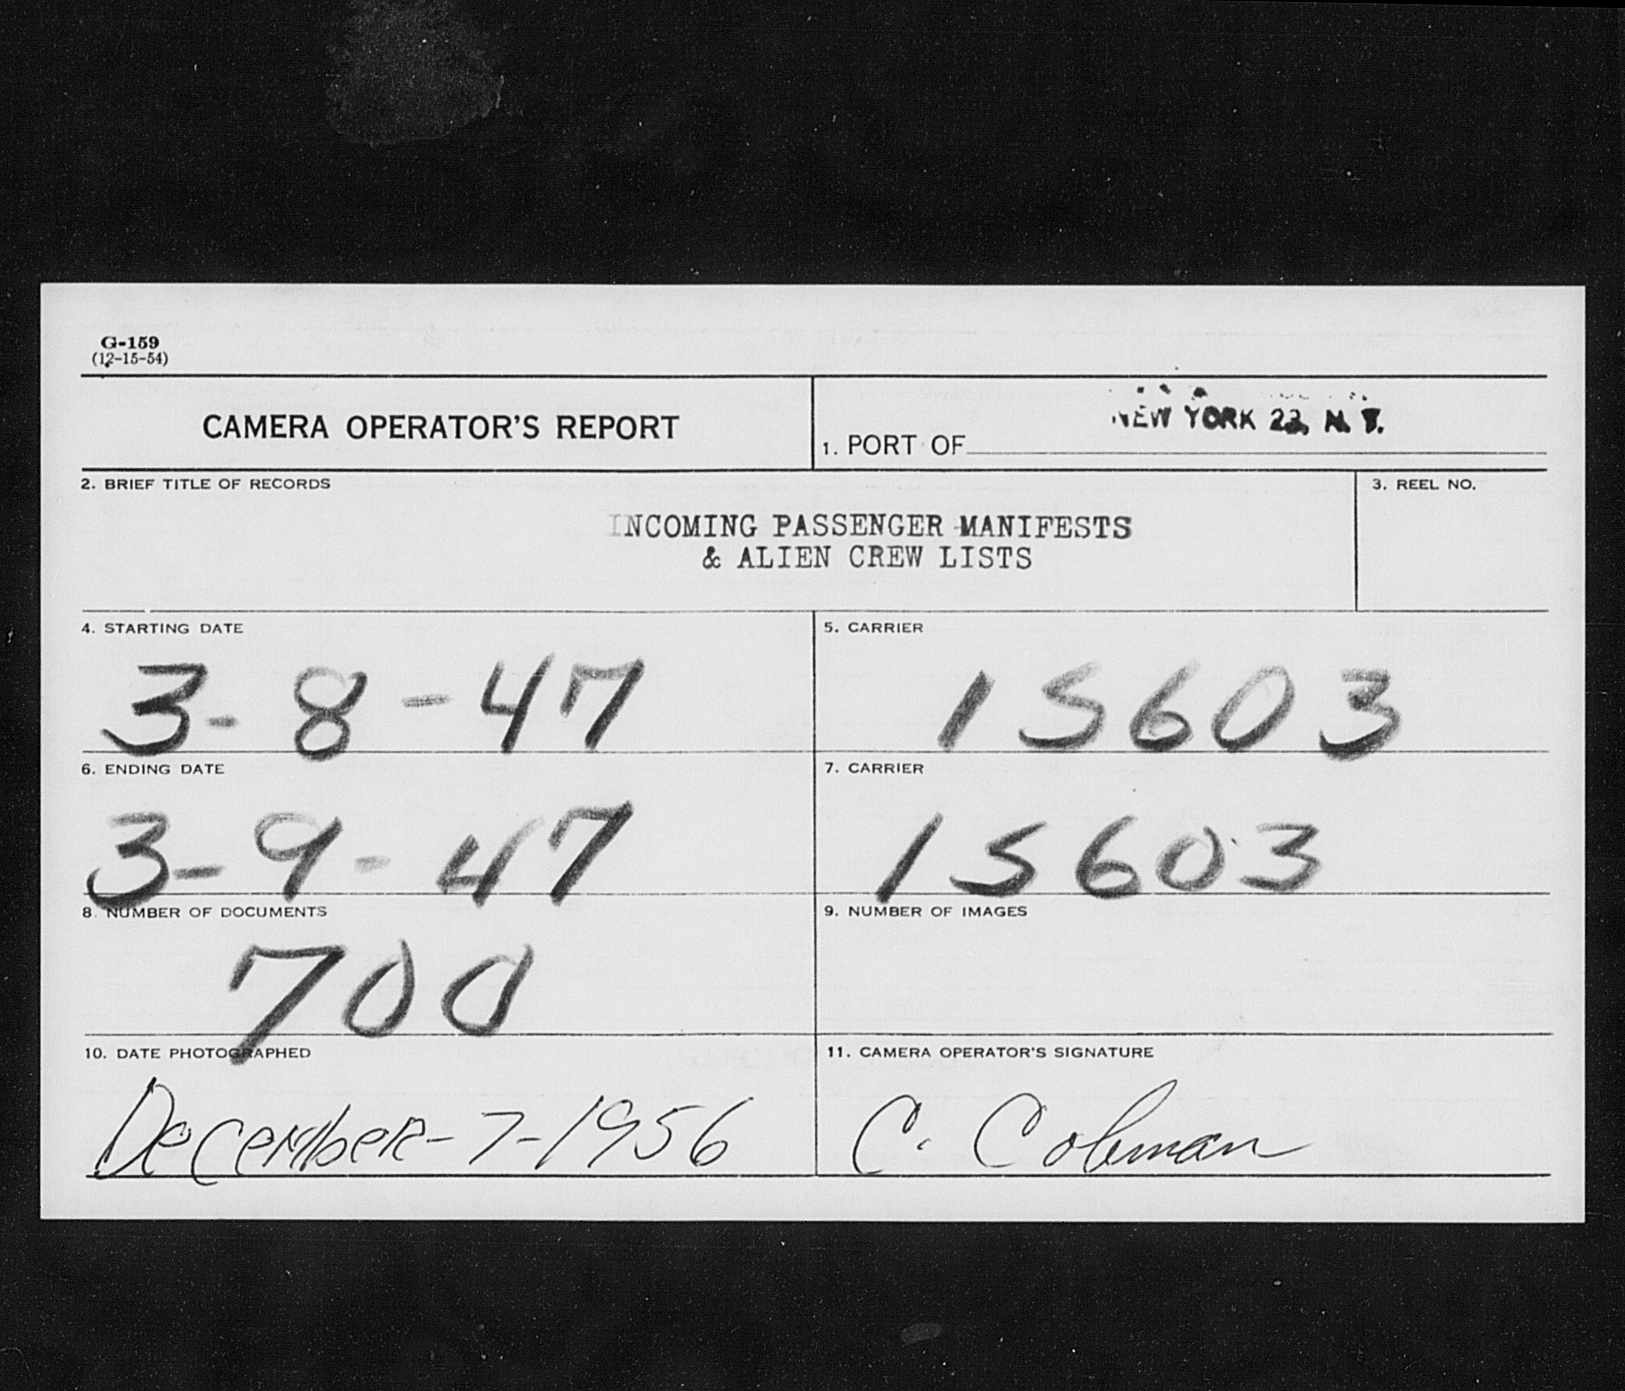 G-159
(12-15-54)
CAMERA OPERATOR'S REPORT
1. PORT OF NEW YORK 22, N. Y.
2. BRIEF TITLE OF RECORDS
INCOMING PASSENGER MANIFESTS
& ALIEN CREW LISTS
3. REEL NO.
4. STARTING DATE
3-8-47
5. CARRIER
15603
6. ENDING DATE
3-9-47
7. CARRIER
15603
8. NUMBER OF DOCUMENTS
700
9. NUMBER OF IMAGES
10. DATE PHOTOGRAPHED
December-7-1956
11. CAMERA OPERATOR'S SIGNATURE
C. Colman